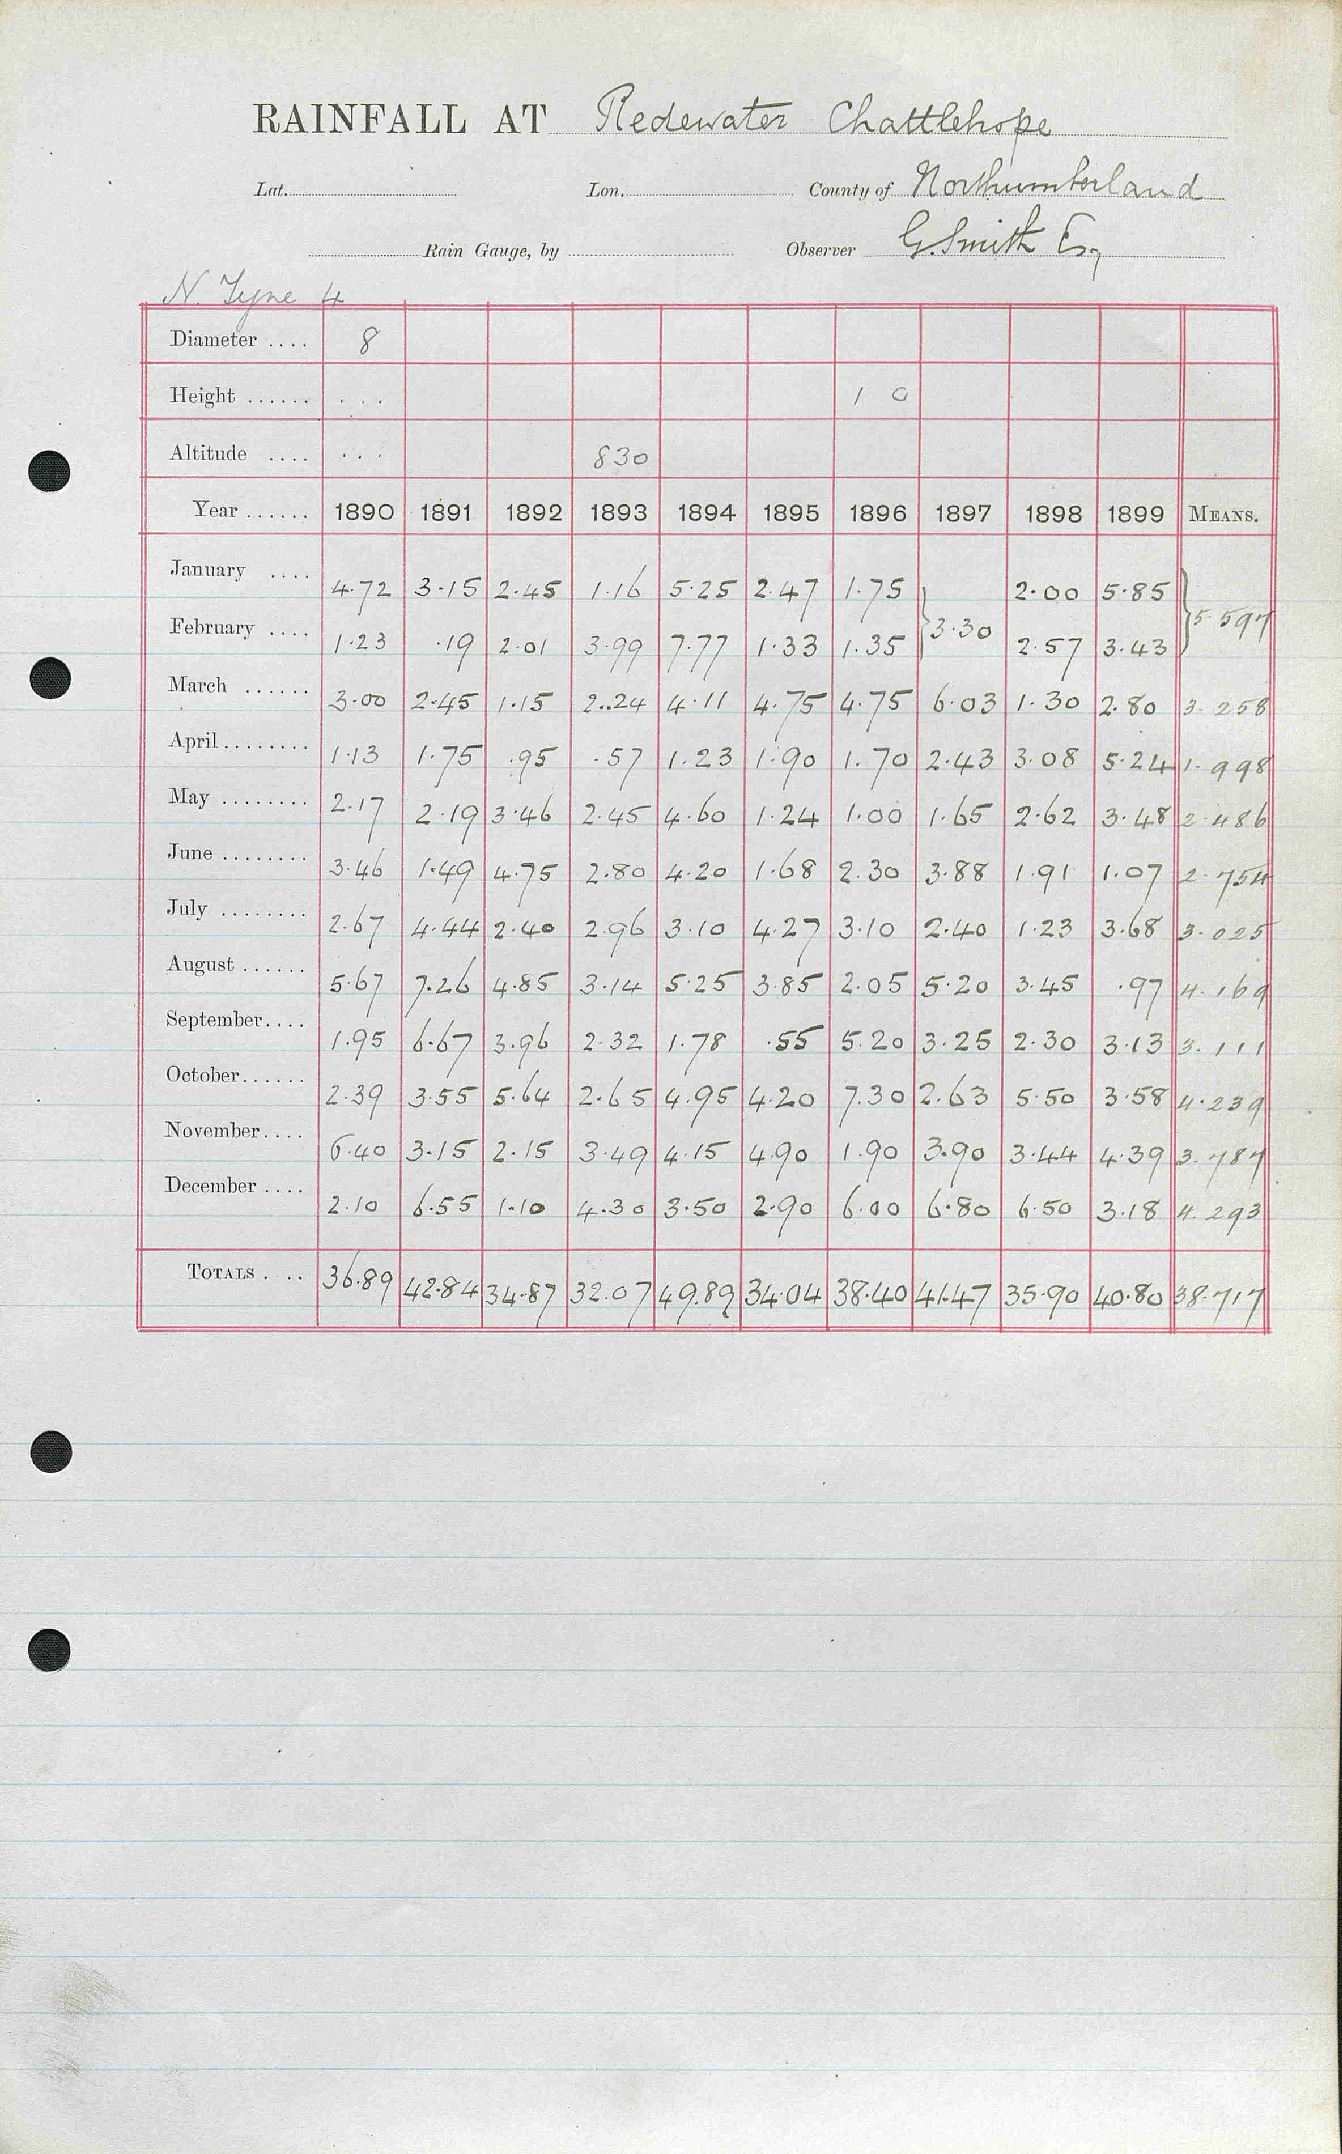 RAINFALL AT Redewater Chattlehope
Lat. Lon. County of Northumberland
Rain Gauge, by Observer G. Smith Esq
N. Tyne 4
Diameter .... 8
Height ...... . . . 1 0
Altitude .... . . . 830
Year ...... 1890 1891 1892 1893 1894 1895 1896 1897 1898 1899 MEANS.
January .... 4.72 3.15 2.45 1.16 5.25 2.47 1.75 2.00 5.85
} 3.30 } 5.597
February .... 1.23 .19 2.01 3.99 7.77 1.33 1.35 2.57 3.43
March ...... 3.00 2.45 1.15 2..24 4.11 4.75 4.75 6.03 1.30 2.80 3.258
April........ 1.13 1.75 .95 .57 1.23 1.90 1.70 2.43 3.08 5.24 1.998
May ........ 2.17 2.19 3.46 2.45 4.60 1.24 1.00 1.65 2.62 3.48 2.486
June ........ 3.46 1.49 4.75 2.80 4.20 1.68 2.30 3.88 1.91 1.07 2.754
July ........ 2.67 4.44 2.40 2.96 3.10 4.27 3.10 2.40 1.23 3.68 3.025
August ...... 5.67 7.26 4.85 3.14 5.25 3.85 2.05 5.20 3.45 .97 4.169
September.... 1.95 6.67 3.96 2.32 1.78 .55 5.20 3.25 2.30 3.13 3.111
October...... 2.39 3.55 5.64 2.65 4.95 4.20 7.30 2.63 5.50 3.58 4.239
November.... 6.40 3.15 2.15 3.49 4.15 4.90 1.90 3.90 3.44 4.39 3.787
December .... 2.10 6.55 1.10 4.30 3.50 2.90 6.00 6.80 6.50 3.18 4.293
TOTALS . .. 36.89 42.84 34.87 32.07 49.89 34.04 38.40 41.47 35.90 40.80 38.717